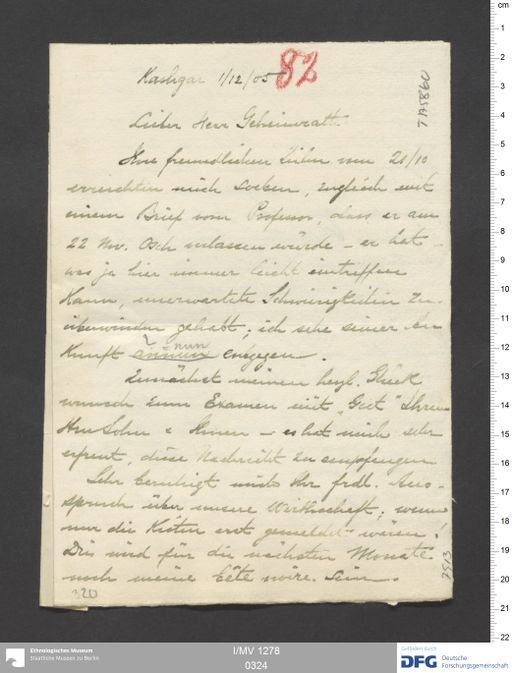 Kashgar 1/12/05
82
Lieber Herr Geheimrath.
Ihre freundlichen Zeilen vom 21/10
erreichten mich soeben, zugleich mit
einem Brief vom Professor, dass er am
22 Nov. Osch verlassen würde – er hat –
was ja hier immer leicht eintreffen
kann, unerwartete Schwierigkeiten zu
überwinden gehabt; ich sehe seiner An
kunft nun entgegen.
Zunächst meinen herzl. Glück
wunsch zum Examen mit "Gut" Ihrem
Hrn Sohn & Ihnen – es hat mich sehr
erfreut, diese Nachricht zu empfangen
Sehr beruhigt mich Ihr frdl. Aus-
spruch über unsere Wirthschaft; wenn
nur die Kisten erst gemeldet wären!
Dies wird für die nächsten Monate
noch meine bête noire sein.
320
TA 5860
7913
Ethnologisches Museum
Staatliche Museen zu Berlin
I/MV 1278
0324
Gefördert durch
DFG Deutsche
Forschungsgemeinschaft
cm
1
2
3
4
5
6
7
8
9
10
11
12
13
14
15
16
17
18
19
20
21
22